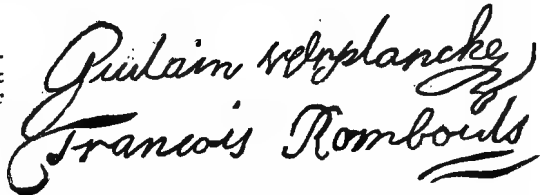 Gulain verplancke
Francois Rombouts